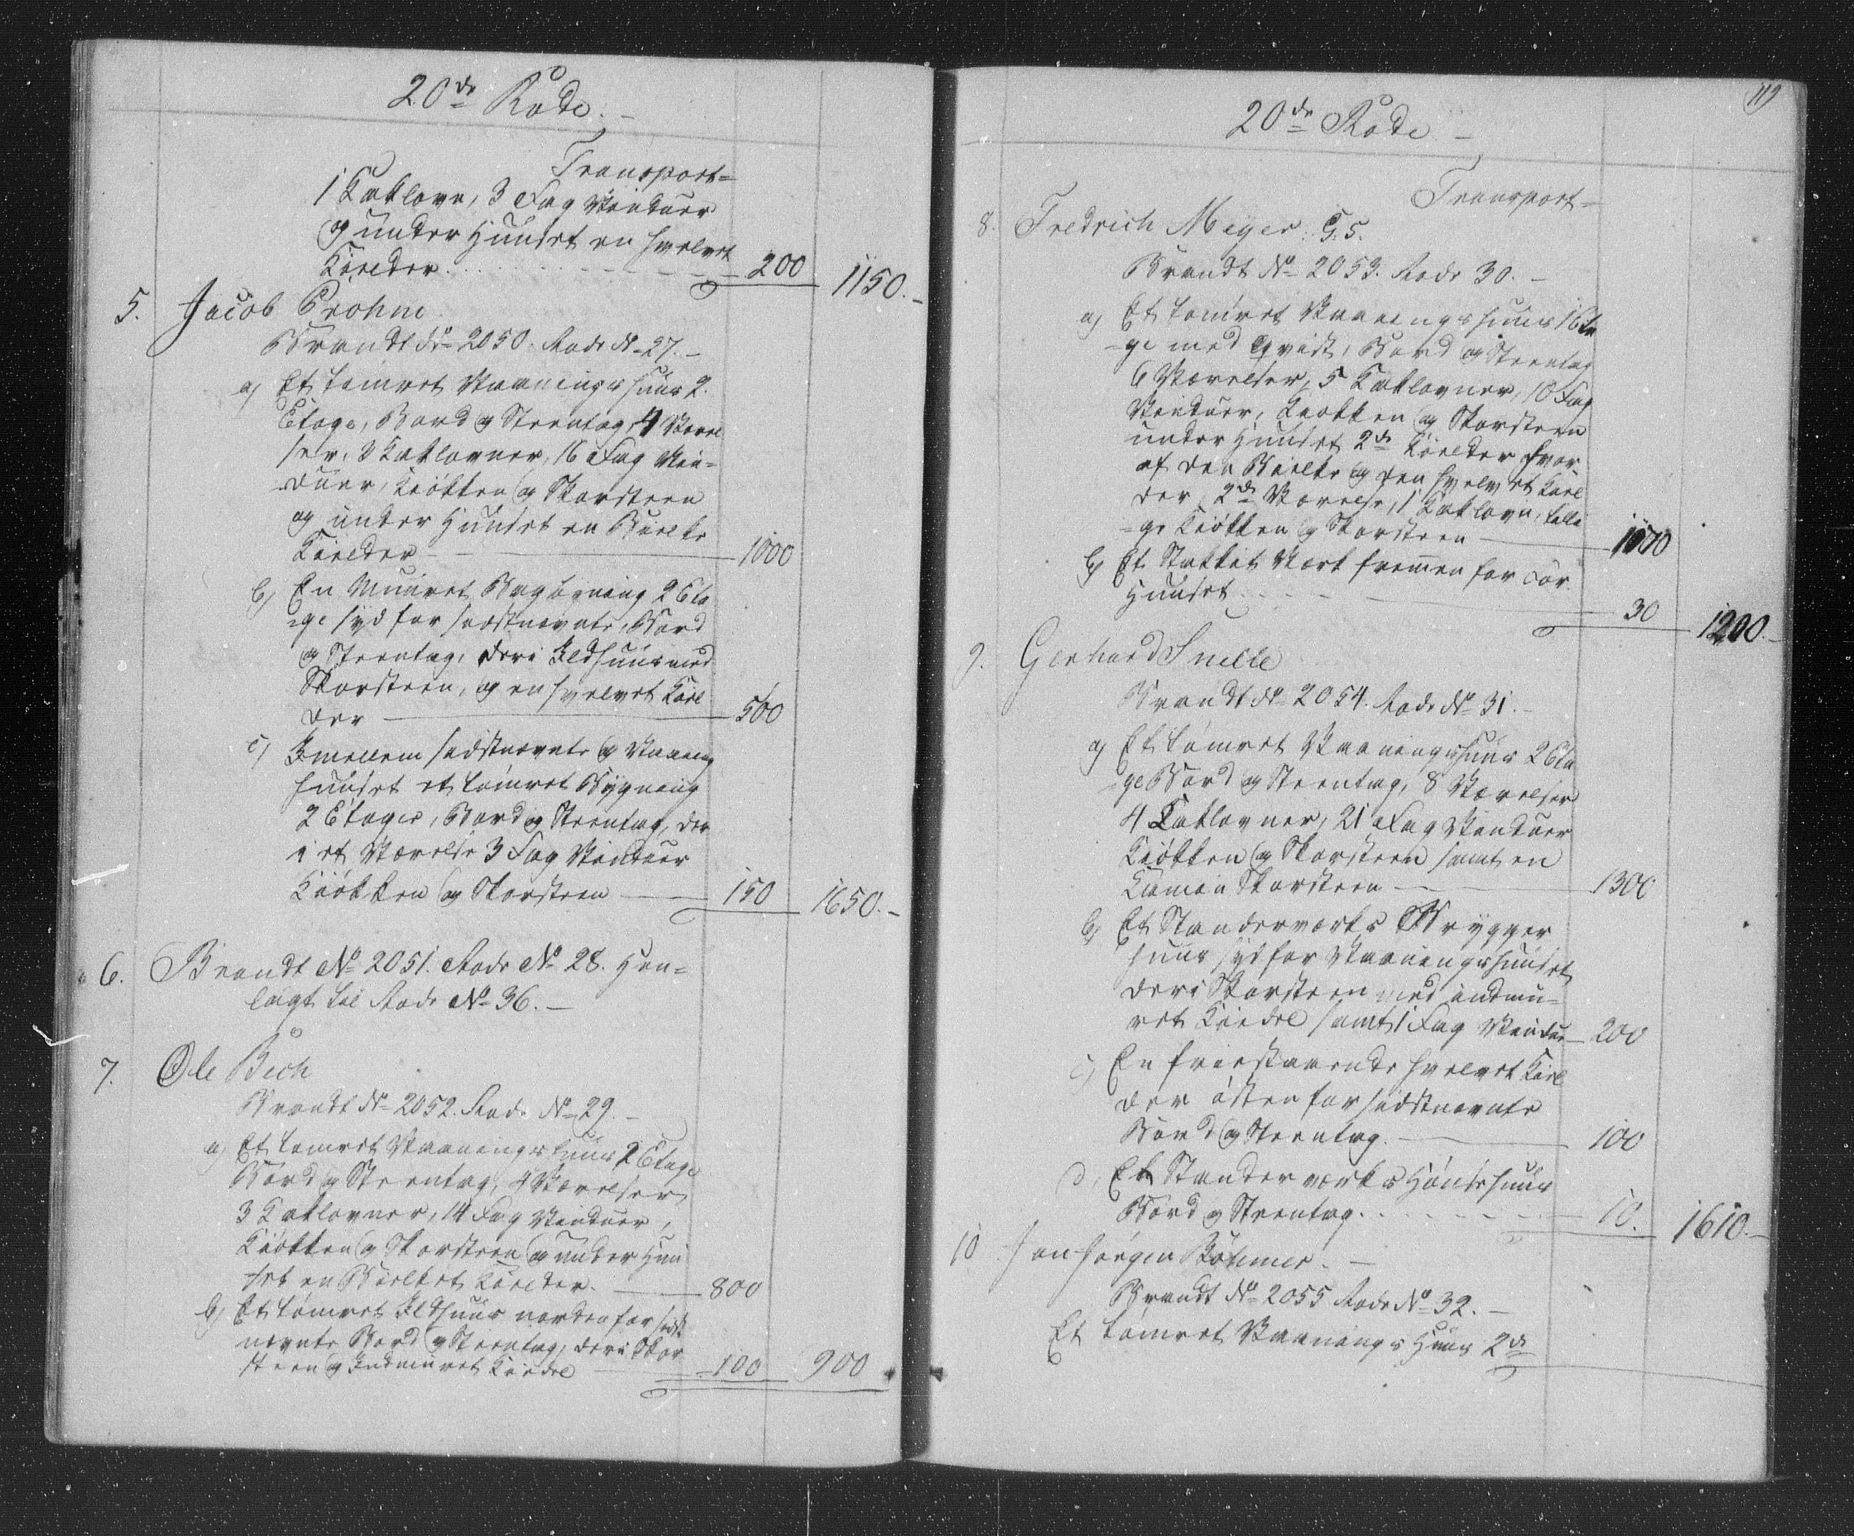 20de Rode.
Transport=
1 Kaklovn, 3 Fag Vinduer
og under Huuset en hvelvet
Kielder . . . . . . 200 1150.
5. Jacob Prohm
Brandt No 2050. Rode No 27.
a) Et tømret Vaaningshuus 2
Etage, Bord og Steentag, 4 Værel
ser, 3 Kaklovner, 16 Fag Vin=
duer, Kiøkken og Skorsteen
og under Huuset en Bielke
Kielder 1000
b) En Muuret Bagbygning 2 Eta
=ge syd for sidstnævnte, Bord
og Steentag, deri Ildhuus med
Skorsteen, og en hvelvet Kiel
der 500
c) Imellem sidstnævnte og Vaaning
huuset et tømret Bygning
2 Etager, Bord og Steentag, der
i et Værelse 3 Fag Vinduer
Kiøkken og Skorsteen 150 1650.
6. Brandt No 2051. Rode No 28. Hen=
lagt til Rode No 36.
7. Ole Bech
Brandt No 2052. Rode No 29.
a) Et tømret Vaaningshuus 2 Etage
Bord og Steentag, 4 Værelser
3 Kaklovner, 14 Fag Vinduer,
Kiøkken og Skorsteen og under Huu
set en Bielket Kielder. 800
b) Et tømret Ildhuus norden for sidst
nævnte Bord og Steentag, deri Skor
steen og Indmuret Kiedel 100 900
119
20de Rode
Transport=
8. Fredrich Meyer. G. 5.
Brandt No 2053. Rode 30.
a) Et tømret Vaaningshuus 1 Eta
=ge med Qvist, Bord og Steentag
6 Værelser, 5 Kaklovner, 10 Fag
Vinduer, Kiøkken og Skorsteen
under Huuset 2de Kielder hvor
af den Bielke og den hvelvet Kiel
der, 2de Værelse, 1 Kaklovn,
Kiøkken og Skorsteen
b) Et Stakket Værk fremmen for
Huuset 30 1200.
9. Gerhard Snelle
Brandt No 2054. Rode No 31.
a) Et tømret Vaaningshuus 2 Eta
ge Bord og Steentag, 8 Værelser
4 Kaklovner, 21 Fag Vinduer
Kiøkken og Skorsteen samt en
Kamin Skorsteen 1300
b) Et Standerværks Brygger
huus syd for Vaaningshuuset
deri Skorsteen med indmu=
ret Kiedel samt 1 Fag Vindue 200
c) En friestaaende hvelvet Kiel
der østen for sidstnævnte
Bord og Steentag. 100
d, Et Standerværks Hønsehuus
Bord og Steentag. . . . . . 10. 1610.
10 Jan Jørgen Bøhmer.
Brandt No 2055 Rode No 32.
Et tømret Vaanings Huus 2de